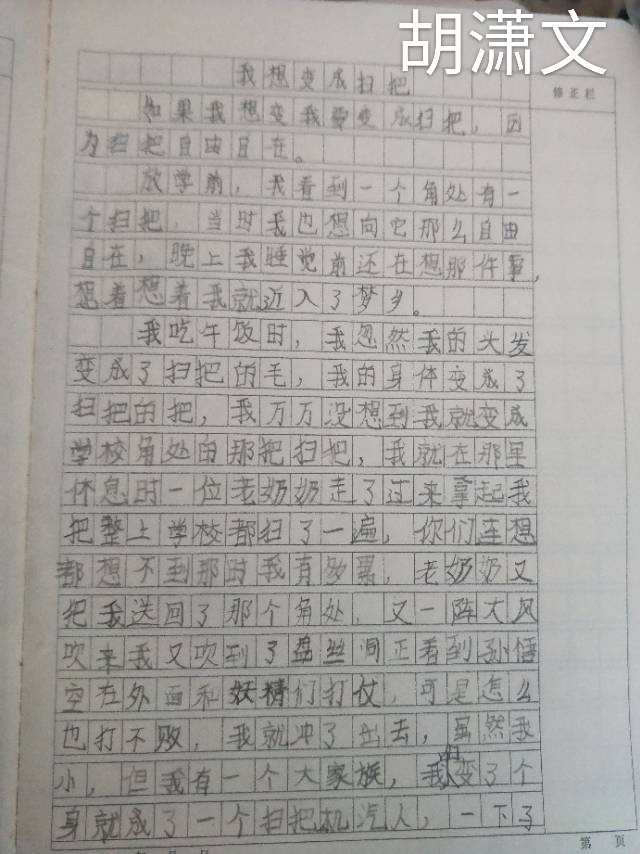 胡潇文
我想变成扫把
修正栏
如果我想变我要变成扫把，因
为扫把自由自在。
放学前，我看到一个角处有一
个扫把，当时我也想向它那么自由
自在，晚上我睡觉前还在想那件事，
想着想着我就近入了梦乡。
我吃午饭时，我忽然我的头发
变成了扫把的毛，我的身体变成了
扫把的把，我万万没想到我就变成
学校角处的那把扫把，我就在那里
休息时一位老奶奶走了过来拿起我
把整上学校都扫了一遍，你们连想
都想不到那时我有多累，老奶奶又
把我送回了那个角处，又一阵大风
吹来我又吹到了盘丝洞正看到孙悟
空在外面和妖精们打仗，可是怎么
也打不败，我就冲了出去，虽然我
小，但我有一个大家族，我变了个
身就成了一个扫把机汽人，一下子
第 页